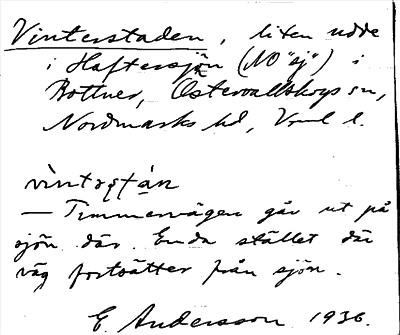 Vinterstaden, liten udde
i Haftersjön (NO "sj") i
Rottner, Östervallskogs sn,
Nordmarks hd, Vrml l.
— Timmervägen går ut på
sjön där. Enda stället där
väg fortsätter från sjön.
E. Andersson 1936.